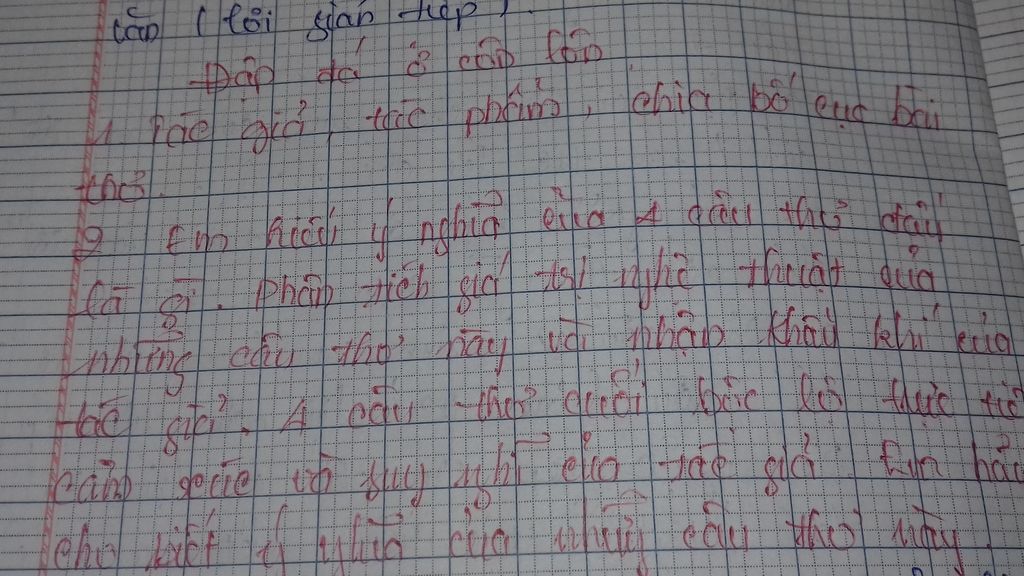 văn (lời gián tiếp).
Đập đá ở côn lôn
1. Tác giả, tác phẩm, chia bố cục bài
thơ.
2 Em hiểu ý nghĩa của 4 câu thơ đầu
là gì. phân tích giá trị nghệ thuật của
những câu thơ này với nhận khẩu khí của
tác giả. 4 câu thơ cuối bộc lộ trực tiếp
cảm xúc và suy nghĩ của tác giả. Em hãy
cho biết ý nghĩa của những câu thơ này.